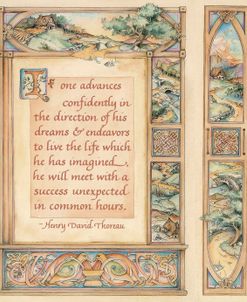 If one advances
confidently in
the direction of his
dreams & endeavors
to live the life which
he has imagined,
he will meet with a
success unexpected
in common hours.
~Henry David Thoreau